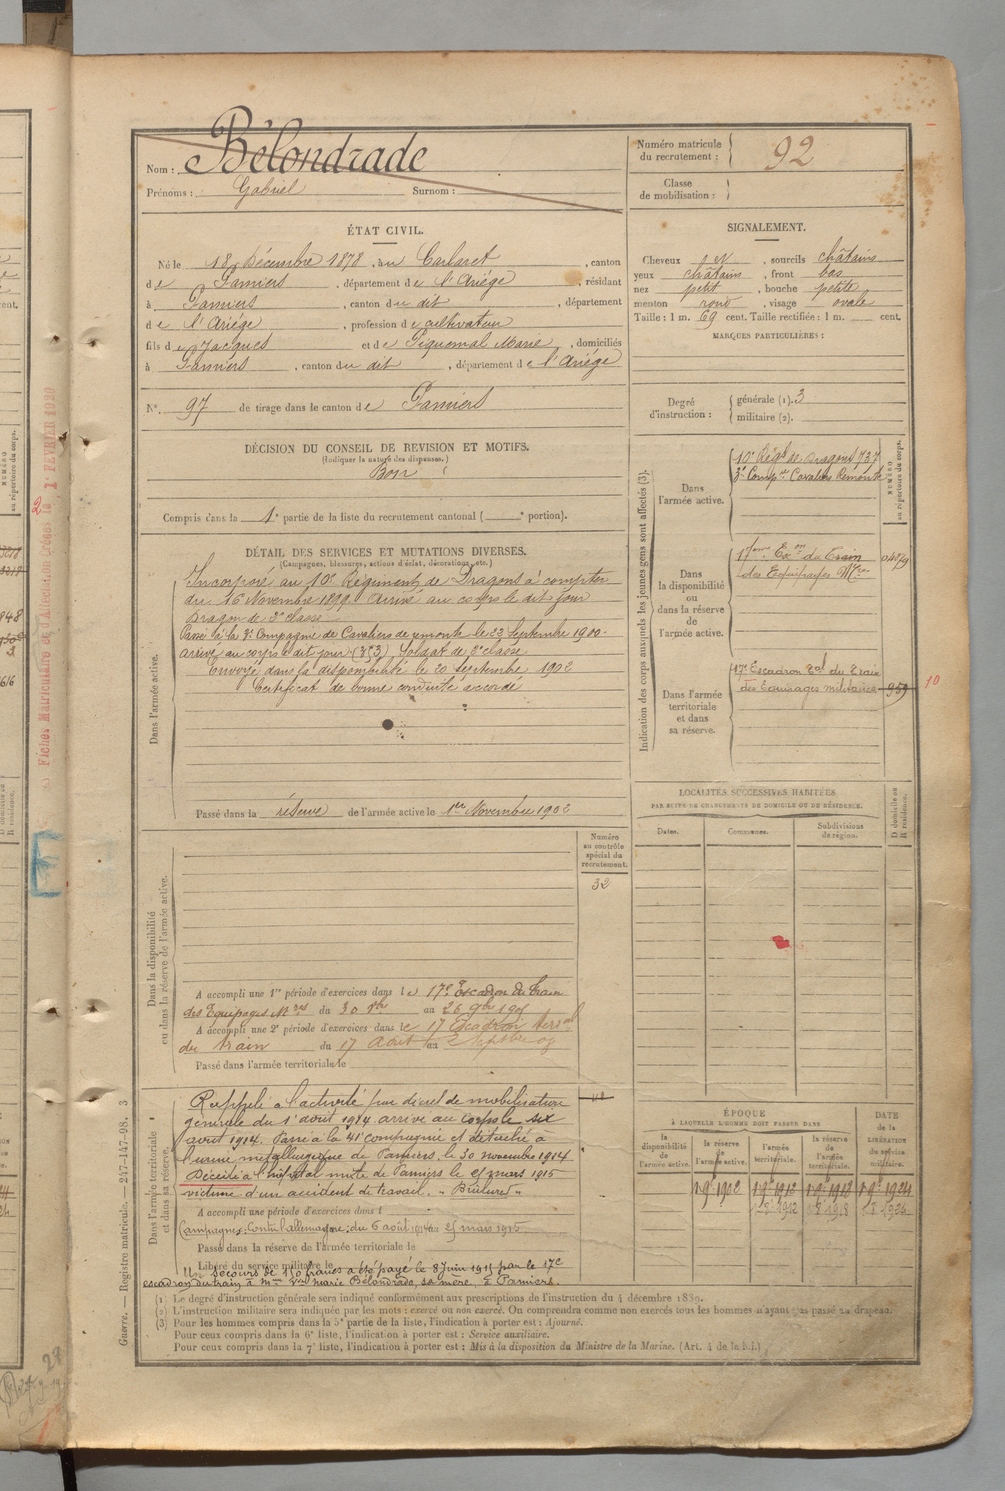 Nom : Bélondrade
Prénoms : Gabriel Surnom :
Numéro matricule du recrutement : 92
Classe de mobilisation :
ÉTAT CIVIL.
Né le 18 Décembre 1878, au Carlaret, canton
de Pamiers, département de l'Ariége, résidant
à Pamiers, canton du dit, département
de l'Ariége, profession de cultivateur
fils de Jacques et de Piquemal Marie, domiciliés
à Pamiers, canton du dit, département de l'Ariége
N° 97 de tirage dans le canton de Pamiers
SIGNALEMENT.
Cheveux , sourcils châtains
yeux châtains, front bas
nez petit, bouche petite
menton rond, visage ovale
Taille : 1 m. 69 cent. Taille rectifiée : 1 m. cent.
MARQUES PARTICULIÈRES :
Degré d'instruction : générale (1). 3
militaire (2).
DÉCISION DU CONSEIL DE REVISION ET MOTIFS.
(Indiquer la nature des dispenses.)
Bon
Compris dans la 1e partie de la liste du recrutement cantonal ( e portion).
DÉTAIL DES SERVICES ET MUTATIONS DIVERSES.
(Campagnes, blessures, actions d'éclat, décorations, etc.)
Dans l'armée active.
Incorporé au 10e Régiment de Dragons à compter
du 16 Novembre 1899. Arrivé au corps le dit jour
Dragon de 2e classe
Passé à la 3e Compagnie de Cavaliers de remonte le 22 Septembre 1900.
arrivé au corps le dit jour (373) Soldat de 2e classe
Envoyé dans la disponibilité le 20 septembre 1902
Certificat de bonne conduite accordé
Passé dans la réserve de l'armée active le 1er Novembre 1902
Indication des corps auxquels les jeunes gens sont affectés (3).
NUMÉRO au répertoire du corps.
Dans l'armée active.
10e Régt de Dragons 737
3e Compie Cavaliers Remonte
Dans la disponibilité ou dans la réserve de l'armée active.
17eme Eson du Train
des Equipages Mres
Dans l'armée territoriale et dans sa réserve.
17e Escadron Tal du Train
des Equipages militaires 959
10
LOCALITÉS SUCCESSIVES HABITÉES
PAR SUITE DE CHANGEMENTS DE DOMICILE OU DE RÉSIDENCE.
Dates. Communes. Subdivisions de région. D domicile ou R résidence.
Dans la disponibilité ou dans la réserve de l'armée active.
Numéro au contrôle spécial du recrutement.
32
A accompli une 1re période d'exercices dans le 17e Escadron du train
des Equipages Mres du 30 8bre au 26 9bre 1905
A accompli une 2e période d'exercices dans le 17 Escadron
du train du 17 Août au 2 Septbre 09
Passé dans l'armée territoriale le
Dans l'armée territoriale et dans sa réserve.
Rappelé à l'activité par décret de mobilisation
générale du 1er août 1914 arrivé au corps le six
août 1914. Passé à la 41e compagnie et détaché à
l'usine métallurgique de Pamiers, le 30 novembre 1914
Décédé à l'hôpital mixte de Pamiers le 25 mars 1915
victime d'un accident de travail. "Brûlures"
A accompli une période d'exercices dans l
Campagnes: Contre l'allemagne: du 6 août 1914 au 25 mars 1915
Passé dans la réserve de l'armée territoriale le
Libéré du service militaire le
Un secours de 150 francs a été payé le 8 Juin 1915 par le 17e
escadron du train à Mme Vve Marie Bélondrade, sa mère, à Pamiers.
ÉPOQUE
À LAQUELLE L'HOMME DOIT PASSER DANS
la disponibilité de l'armée active. la réserve de l'armée active. l'armée territoriale. la réserve de l'armée territoriale. DATE de la LIBÉRATION du service militaire.
1.9e 1902 1.9e 1912 1.9e 1918 1.9e 1924
1.8e 1912 1.8e 1918 1.8e 1924
(1) Le degré d'instruction générale sera indiqué conformément aux prescriptions de l'instruction du 4 décembre 1889.
(2) L'instruction militaire sera indiquée par les mots : exercé ou non exercé. On comprendra comme non exercés tous les hommes n'ayant pas passé au drapeau.
(3) Pour les hommes compris dans la 5e partie de la liste, l'indication à porter est : Ajourné.
Pour ceux compris dans la 6e liste, l'indication à porter est : Service auxiliaire.
Pour ceux compris dans la 7e liste, l'indication à porter est : Mis à la disposition du Ministre de la Marine. (Art. 4 de la loi.)
Guerre. — Registre matricule. — 247-147-98. 3
Fiches Matriculaire et d'Affectation Créées le 1er FÉVRIER 1920